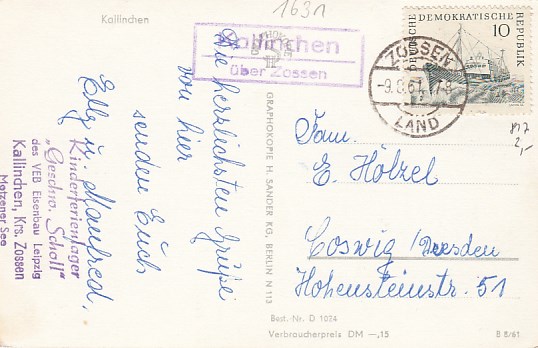 Kallinchen
1631
Kallinchen
über Zossen
Die herrlichsten Grüße
von hier
senden Euch
Elly u. Manfred.
Kinderferienlager
„Geschw. Scholl“
des VEB Eisenbau Leipzig
Kallinchen, Krs. Zossen
Motzener See
GRAPHOKOPIE H. SANDER KG, BERLIN N 113
DEUTSCHE DEMOKRATISCHE REPUBLIK
10
ZOSSEN
-9.8.61
LAND
2,-
Fam.
E. Hölzel
Coswig / Dresden
Hohensteinstr. 51
Best.-Nr. D 1024
Verbraucherpreis DM —,15
B 8/61